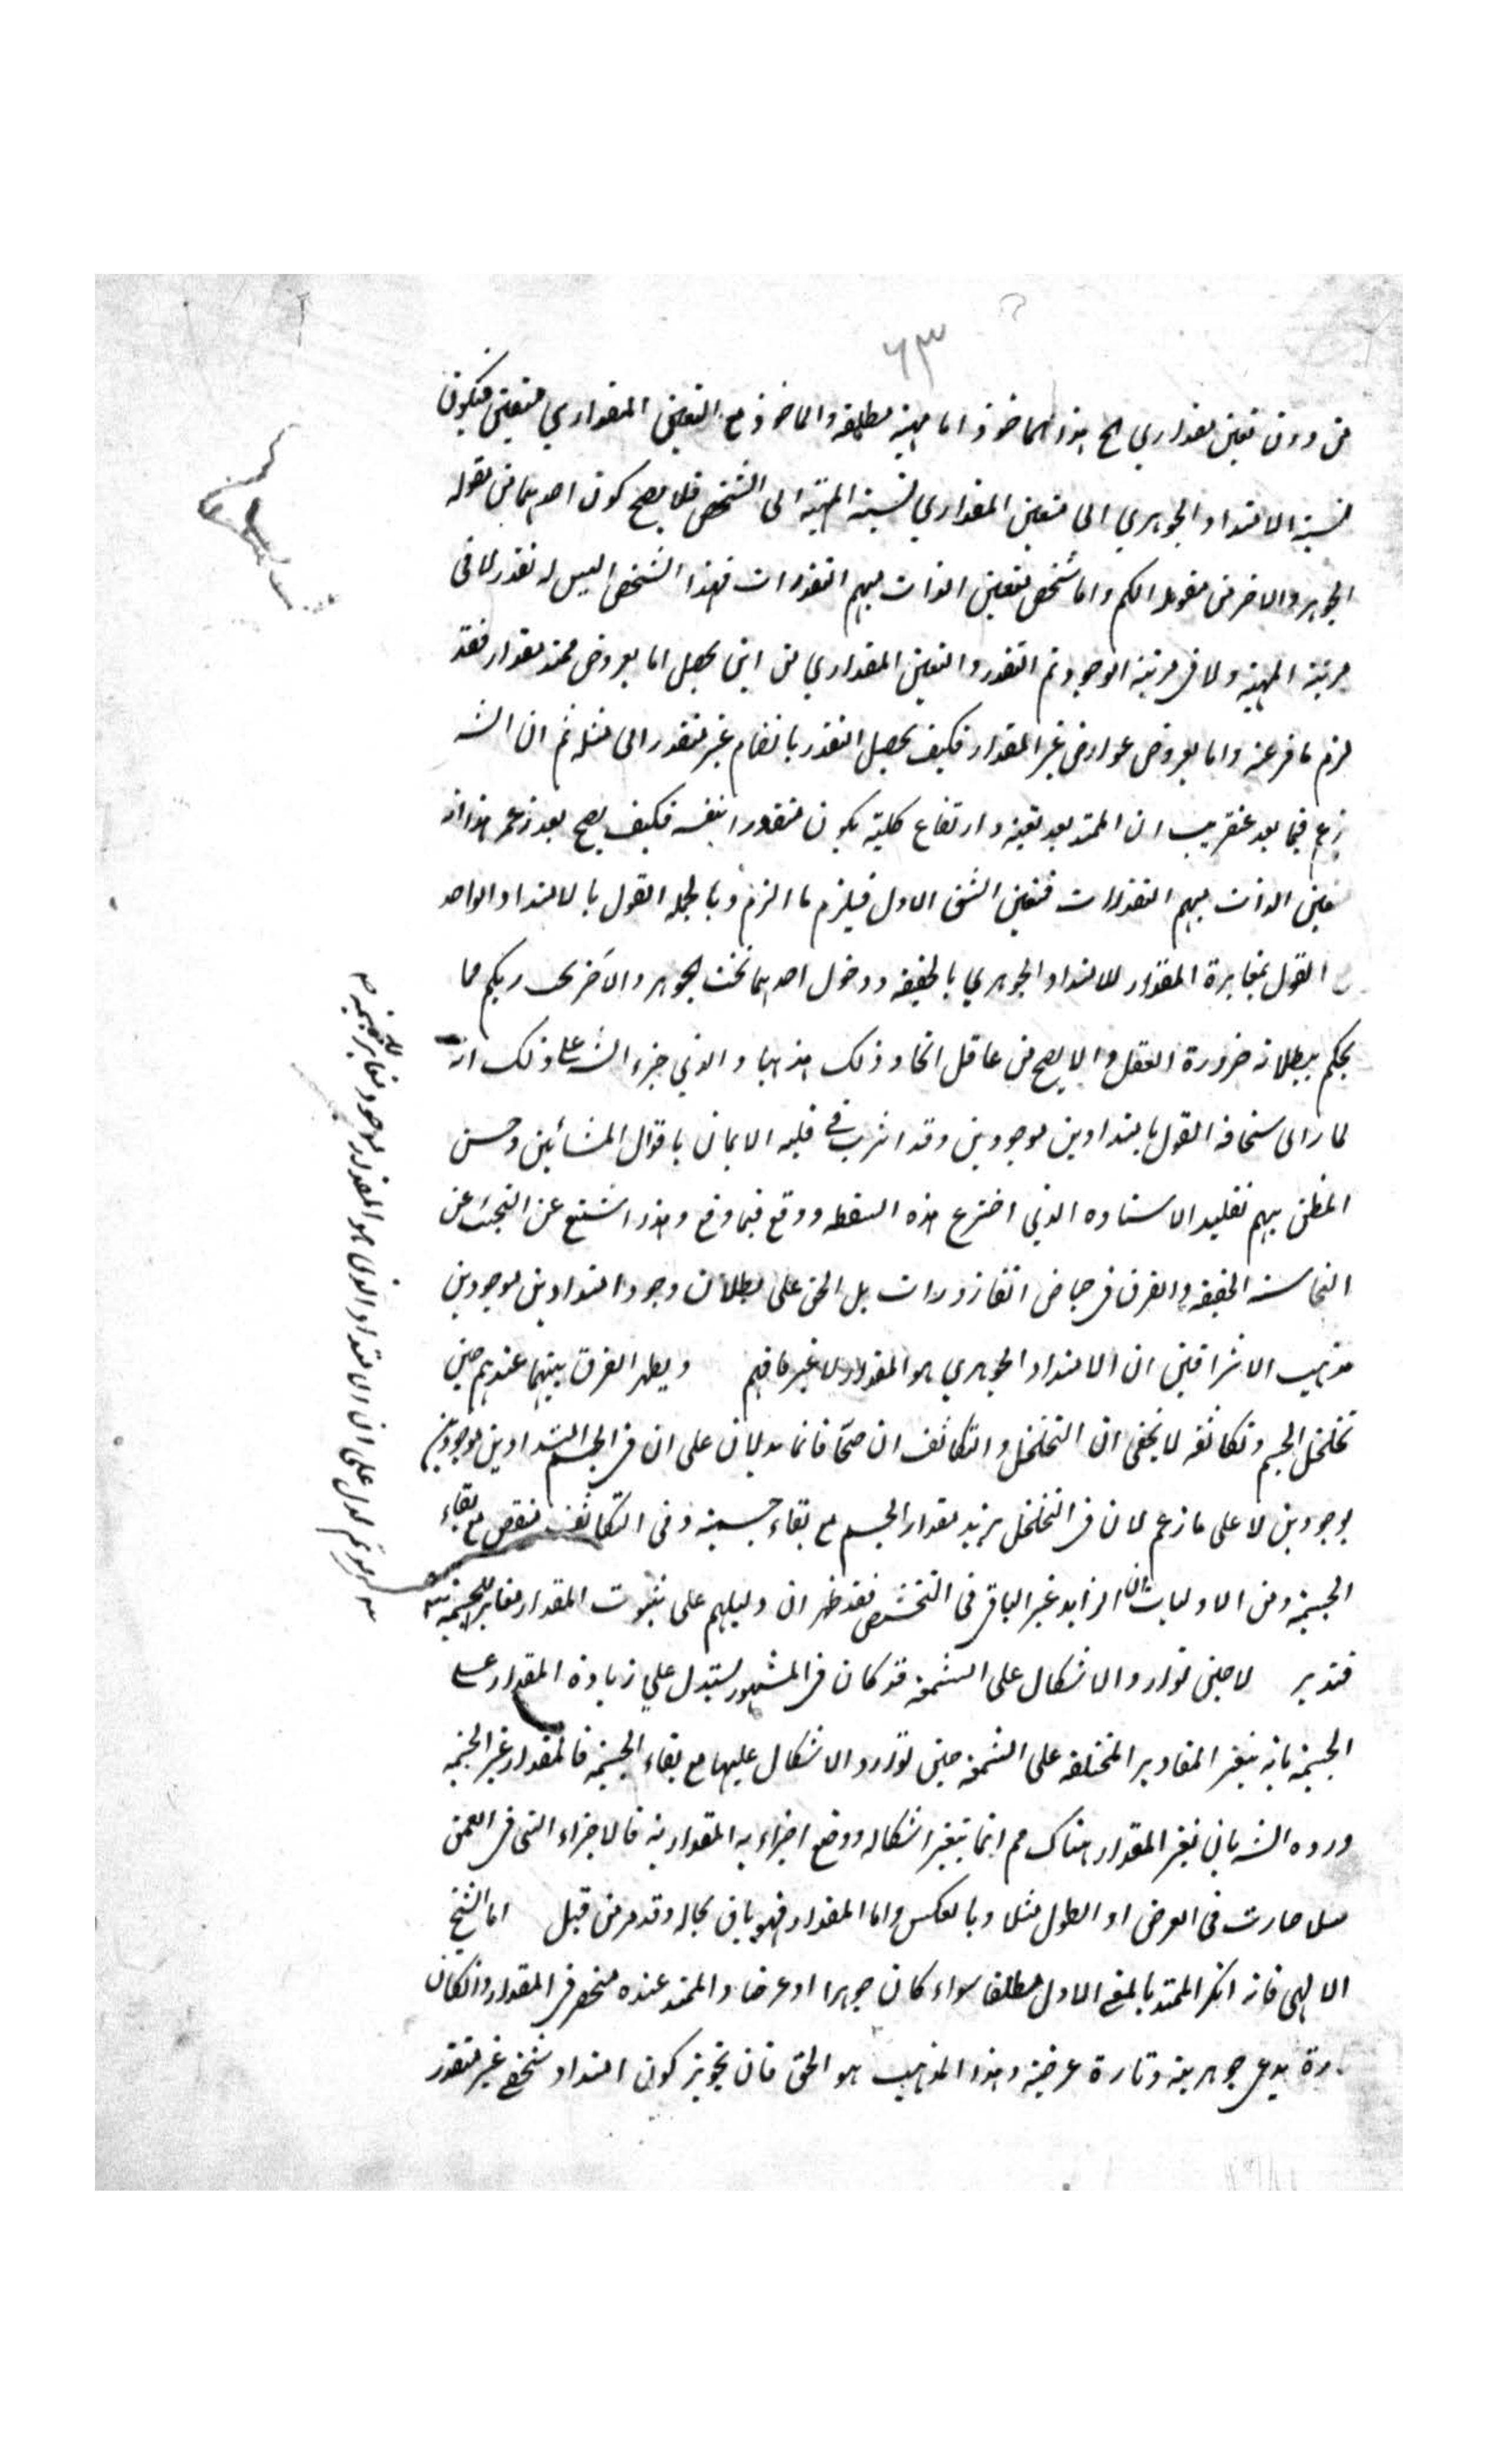 ٦٣
من دون تعين مقداري ح هذا الماخوذ اما مهية مطلقة والماخوذ مع التعين المقداري متعين فيكون
نسبة الامتداد الجوهري الى متعين المقداري نسبة المهية الى الشخص فلا يصح كون احدهما من مقولة
الجوهر والاخر من مقولة الكم واما شخص متعين الذات مبهم التقدرات فهذا الشخص اليس له تقدر لا في
مرتبة المهية ولا في مرتبة الوجود ثم التقدر والتعين المقداري من اين يحصل اما بعروض ممتد مقدار فقد
لزم ما فر عنه واما بعروض عوارض غير المقدار فكيف يحصل التقدر بانضمام غير متقدر الى مثله ثم ان الشه
زعم فيما بعد عنقريب ان الممتد بعد تعينه وارتفاع كليته يكون متقدرا بنفسه فكيف يصح بعد زعمه هذا انه
متعين الذات مبهم التقدرات فتعين الشق الاول فيلزم ما الزم وبالجملة القول بالامتداد الواحد
القول بمغايرة المقدار للامتداد الجوهري بالحقيقة ودخول احدهما تحت الجوهر والآخر تحت الكم مما
يحكم ببطلانه ضرورة العقل والا يصح من عاقل اتخاذ ذلك مذهبا والذي جرء الشه على ذلك انه
لما راى سخافة القول بامتدادين موجودين وقد اشرب في قلبه الايمان باقوال المشائين وحسن
الظن بهم تقليد الاستاده الذي اخترع هذه السقطه ووقع فيما وقع وهذا اشنع عن التجنب عن
النجاسة الخفيفة والغرق في حياض القاذورات بل الحق على بطلان وجود امتدادين موجودين
مذهب الاشراقين ان الامتداد الجوهري هو المقدار لا غير فافهم ويظهر الفرق بينهما عندهم حين
تخلخل الجسم وتكاثفه لا يخفى ان التخلخل والتكاثف ان صحا فانما يدلان على ان في الجسم امتدادين موجودين
موجودين لا على ما زعم لان في التخلخل يزيد مقدار الجسم مع بقاء جسميته وفي التكاثف ينقص مع بقاء
الجسمية ومن الاوليات ان الزايد غير الباقي في التشخص فقد ظهر ان دليلهم على ثبوت المقدار مغاير للجسمية
فتدبر لا حين توارد الاشكال على الشمعة قد كان في المشهور يستدل علي زيادة المقدار على
الجسمية بانه يتغير المقادير المختلفة على الشمعة حين توارد الاشكال عليها مع بقاء الجسمية فالمقدار غير الجسمية
ورده الشه بان تغير المقدار هناك مم انما يتغير اشكاله ووضع اجزاءه المقدارية فالاجزاء التي في العمق
مثلا صارت في العرض او الطول مثلا وبالعكس واما المقدار فهو باق بحاله وقد مر من قبل اما الشيخ
الالهي فانه انكر الممتد بالمعنى الاول مطلقا سواء كان جوهرا او عرضا والممتد عنده منحصر في المقدار وان كان
تارة يدعي جوهريته وتارة عرضيته وهذا المذهب هو الحق فان تجويز كون امتداد شخصي غير متقدر
لو تم لدل على ان الامتداد الذي هو المقدار موجود مغاير للجسمية